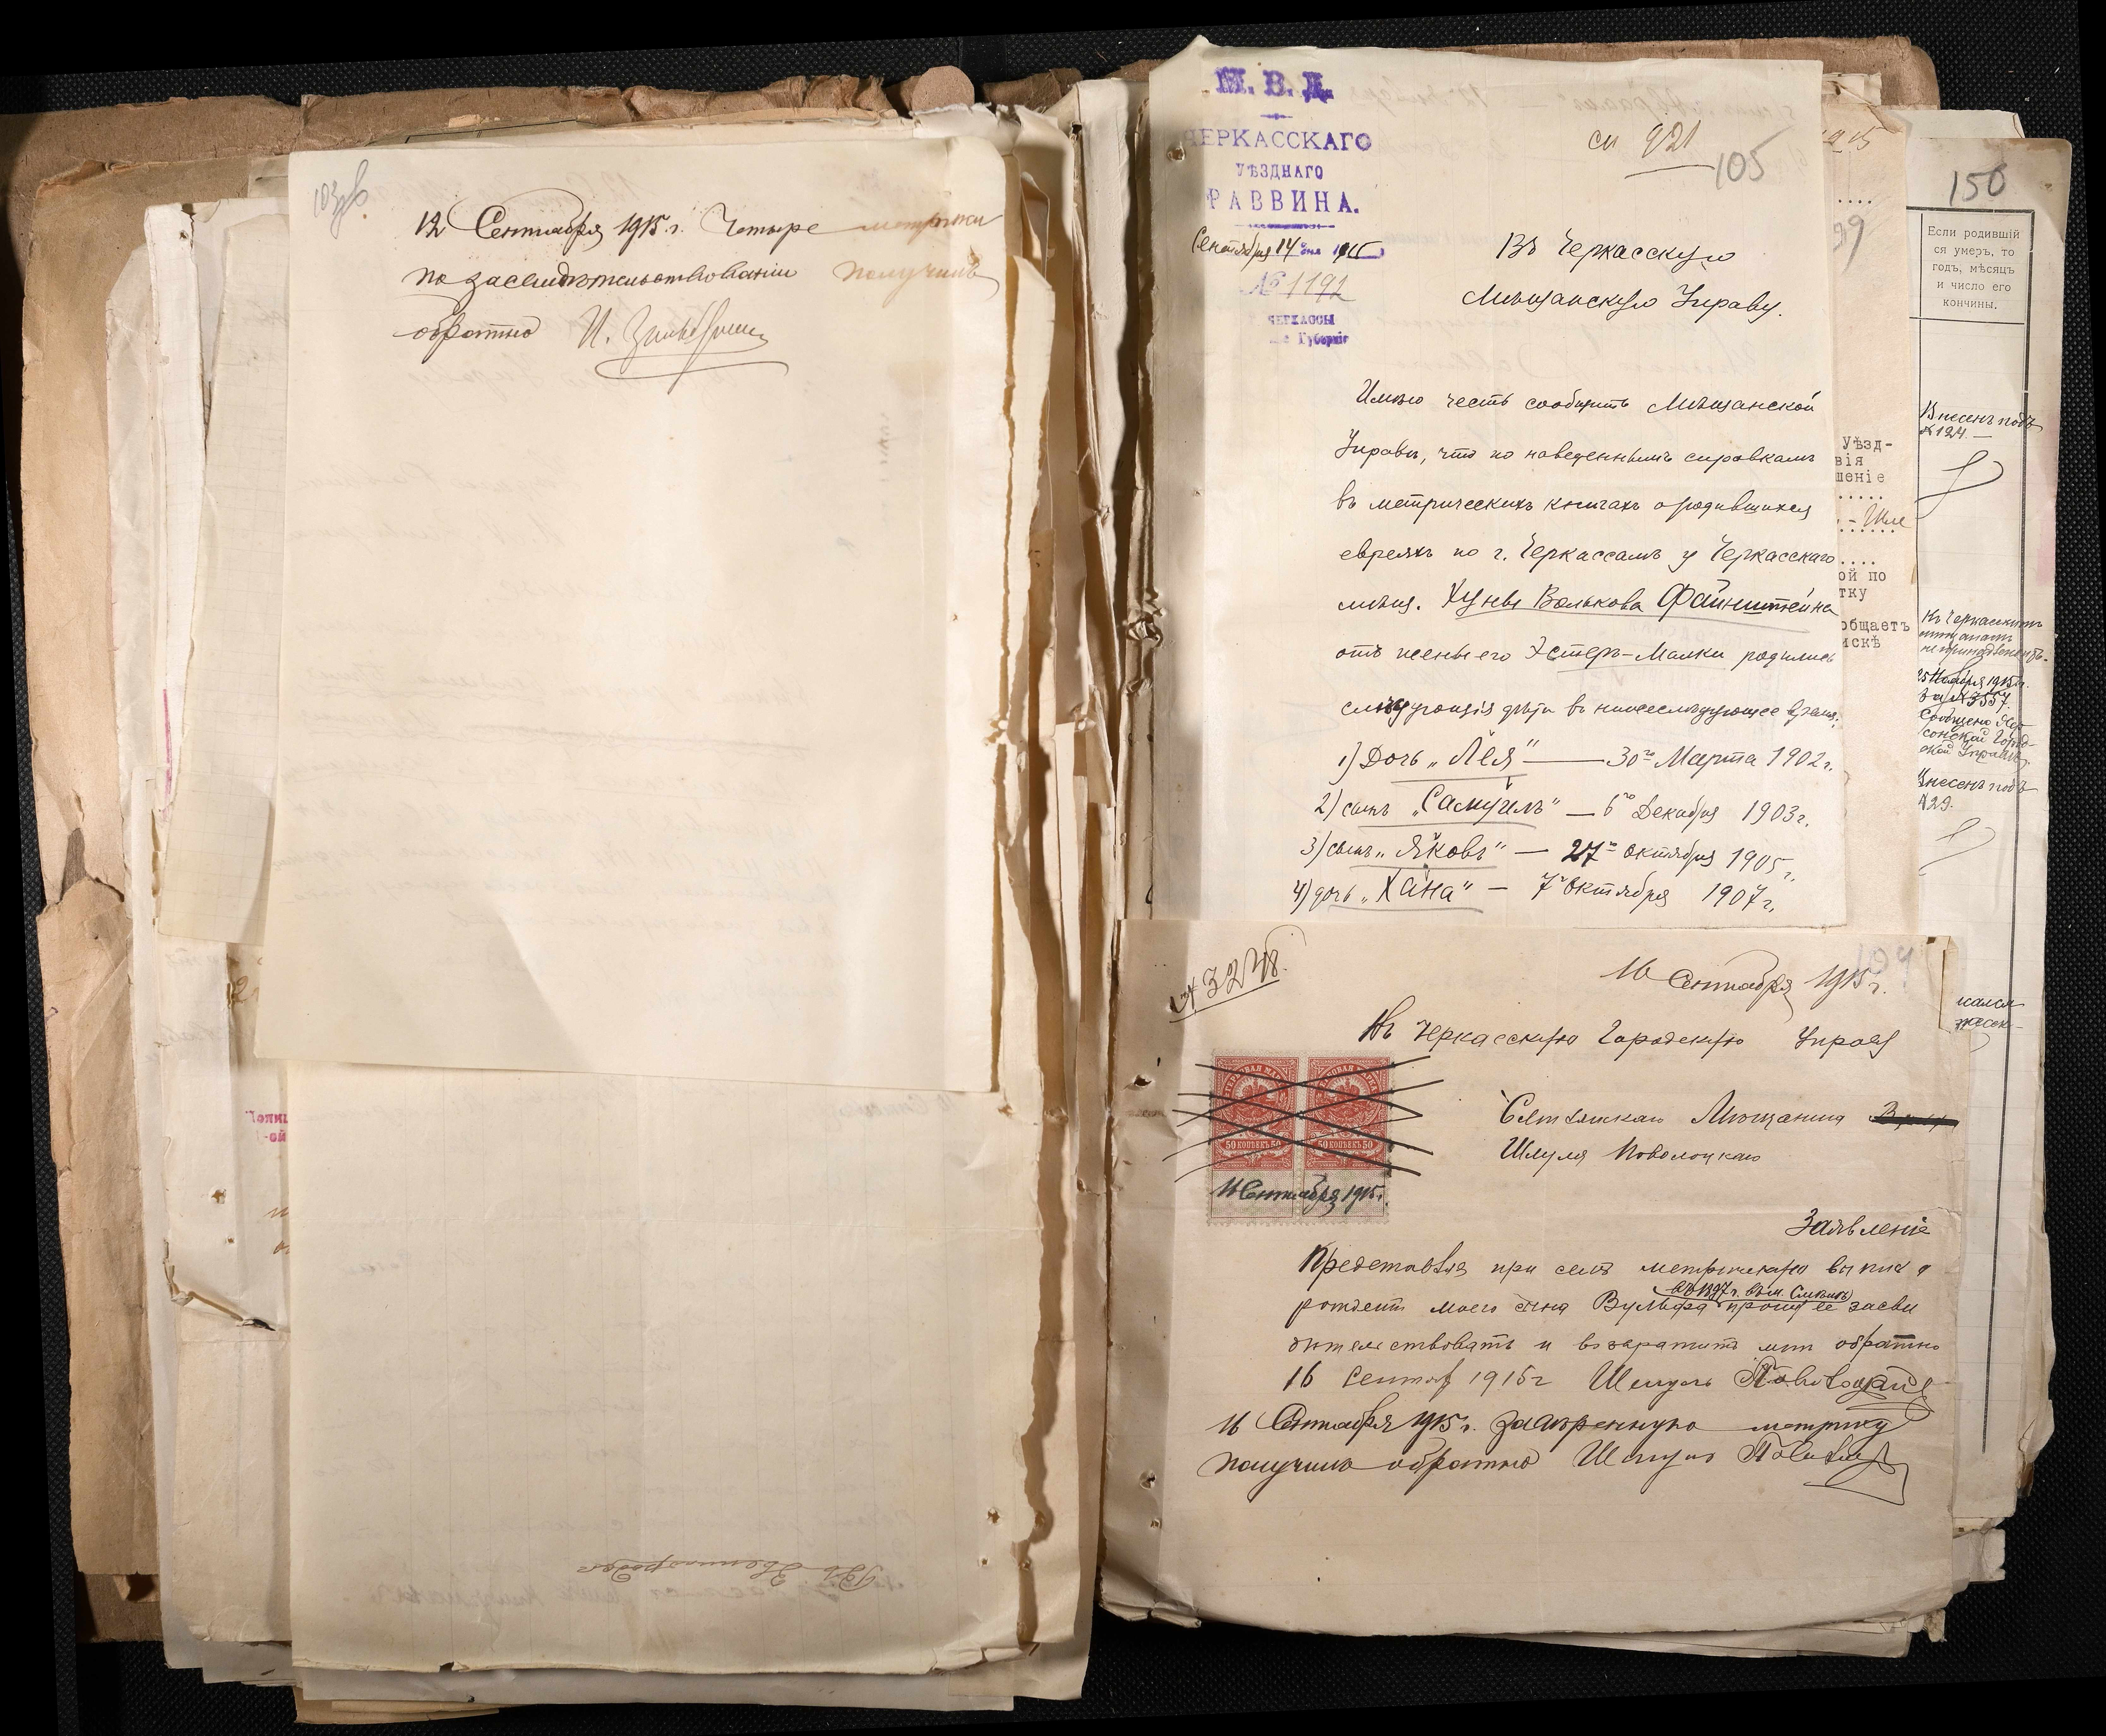 12 Сентября 1915 г. Четыре метрики
по засвидѣтельствованіи получилъ
обратно И.
М. В. Д.
ЧЕРКАССКАГО
УѢЗДНАГО
РАВВИНА.
Сентября 14 дня 1915
№ 1192
ЧЕРКАССЫ
Губерніи
921
105
Въ Черкасскую
Мѣщанскую Управу.
Имѣю честь сообщить Мѣщанской
Управѣ, что по наведеннымъ справкамъ
въ метрическихъ книгахъ о родившихся
евреяхъ по г. Черкассамъ у Черкасскаго
мѣщ. Хуны Волькова Файнштейна
отъ жены его Эстеръ-Малки родились
слѣдующія дѣти въ нижеслѣдующее время:
1) Дочь „Лея" — 30го Марта 1902 г.
2) сынъ „Самуилъ" — 6го Декабря 1903 г.
3) сынъ „Яковъ" — 27го Октября 1905 г.
4) дочь „Хана" — 7го Октября 1907 г.
№ 3248.
16 Сентября 1915 г.
Въ Черкасскую Городскую Управу
Мѣщанина
Шмуля Поволоцкаго
Заявленіе
Представляя при семъ метрическую выпись о
въ 1897 г. въ м. Смѣлѣ
рожденіи моего сына Вульфа прошу ее засви
дѣтельствовать и возвратить мнѣ обратно
16 Сентяб 1915 г Шмуль Поволоцкій
16 Сентября 1915 г. заверенную метрику
получилъ обратно Шмуль
50 КОПѢЕКЪ 50
50 КОПѢЕКЪ 50
16 Сентября 1915 г.
150
Если родившій
ся умеръ, то
годъ, мѣсяцъ
и число его
кончины.
Внесенъ подъ
№ 124.
Къ Черкасскимъ
мѣщанамъ
не принадлежитъ.
25 Ноября 1915 г.
За № 3557.
Сообщено Хер-
сонской Город-
ской Управѣ.
Внесенъ подъ
№ 29.
99
Уѣзд-
вія
шеніе
ой по
тку
общаетъ
искѣ